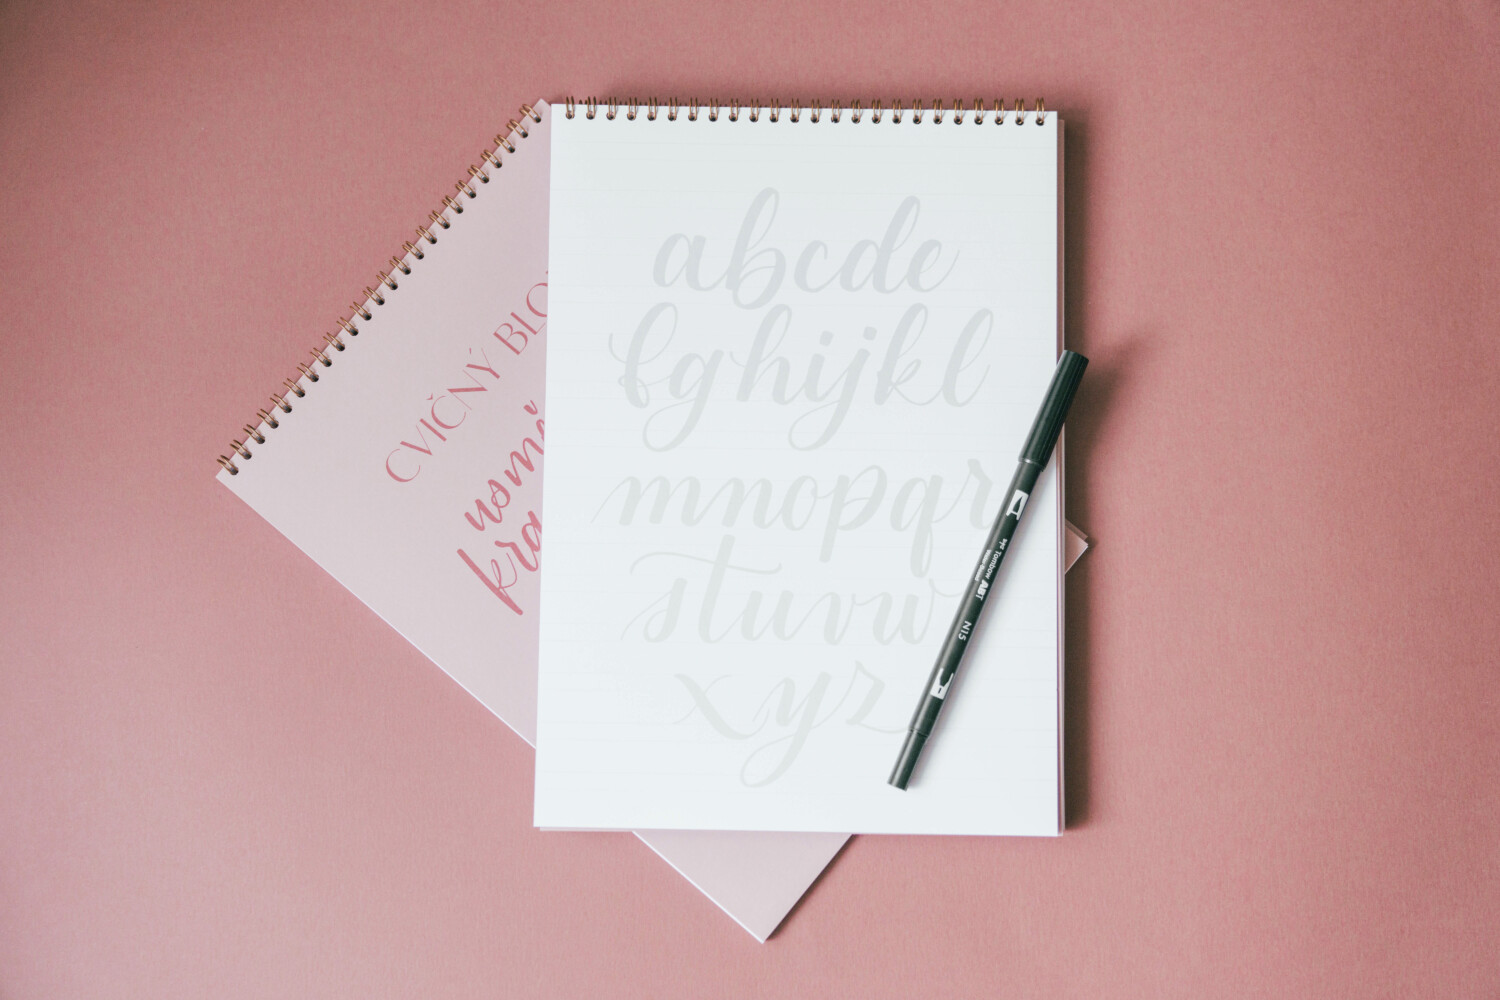 CVIČNÝ BLO
abcde
fghijkl
mnopqr
stuvw
xyz
Tombow ABT
N15